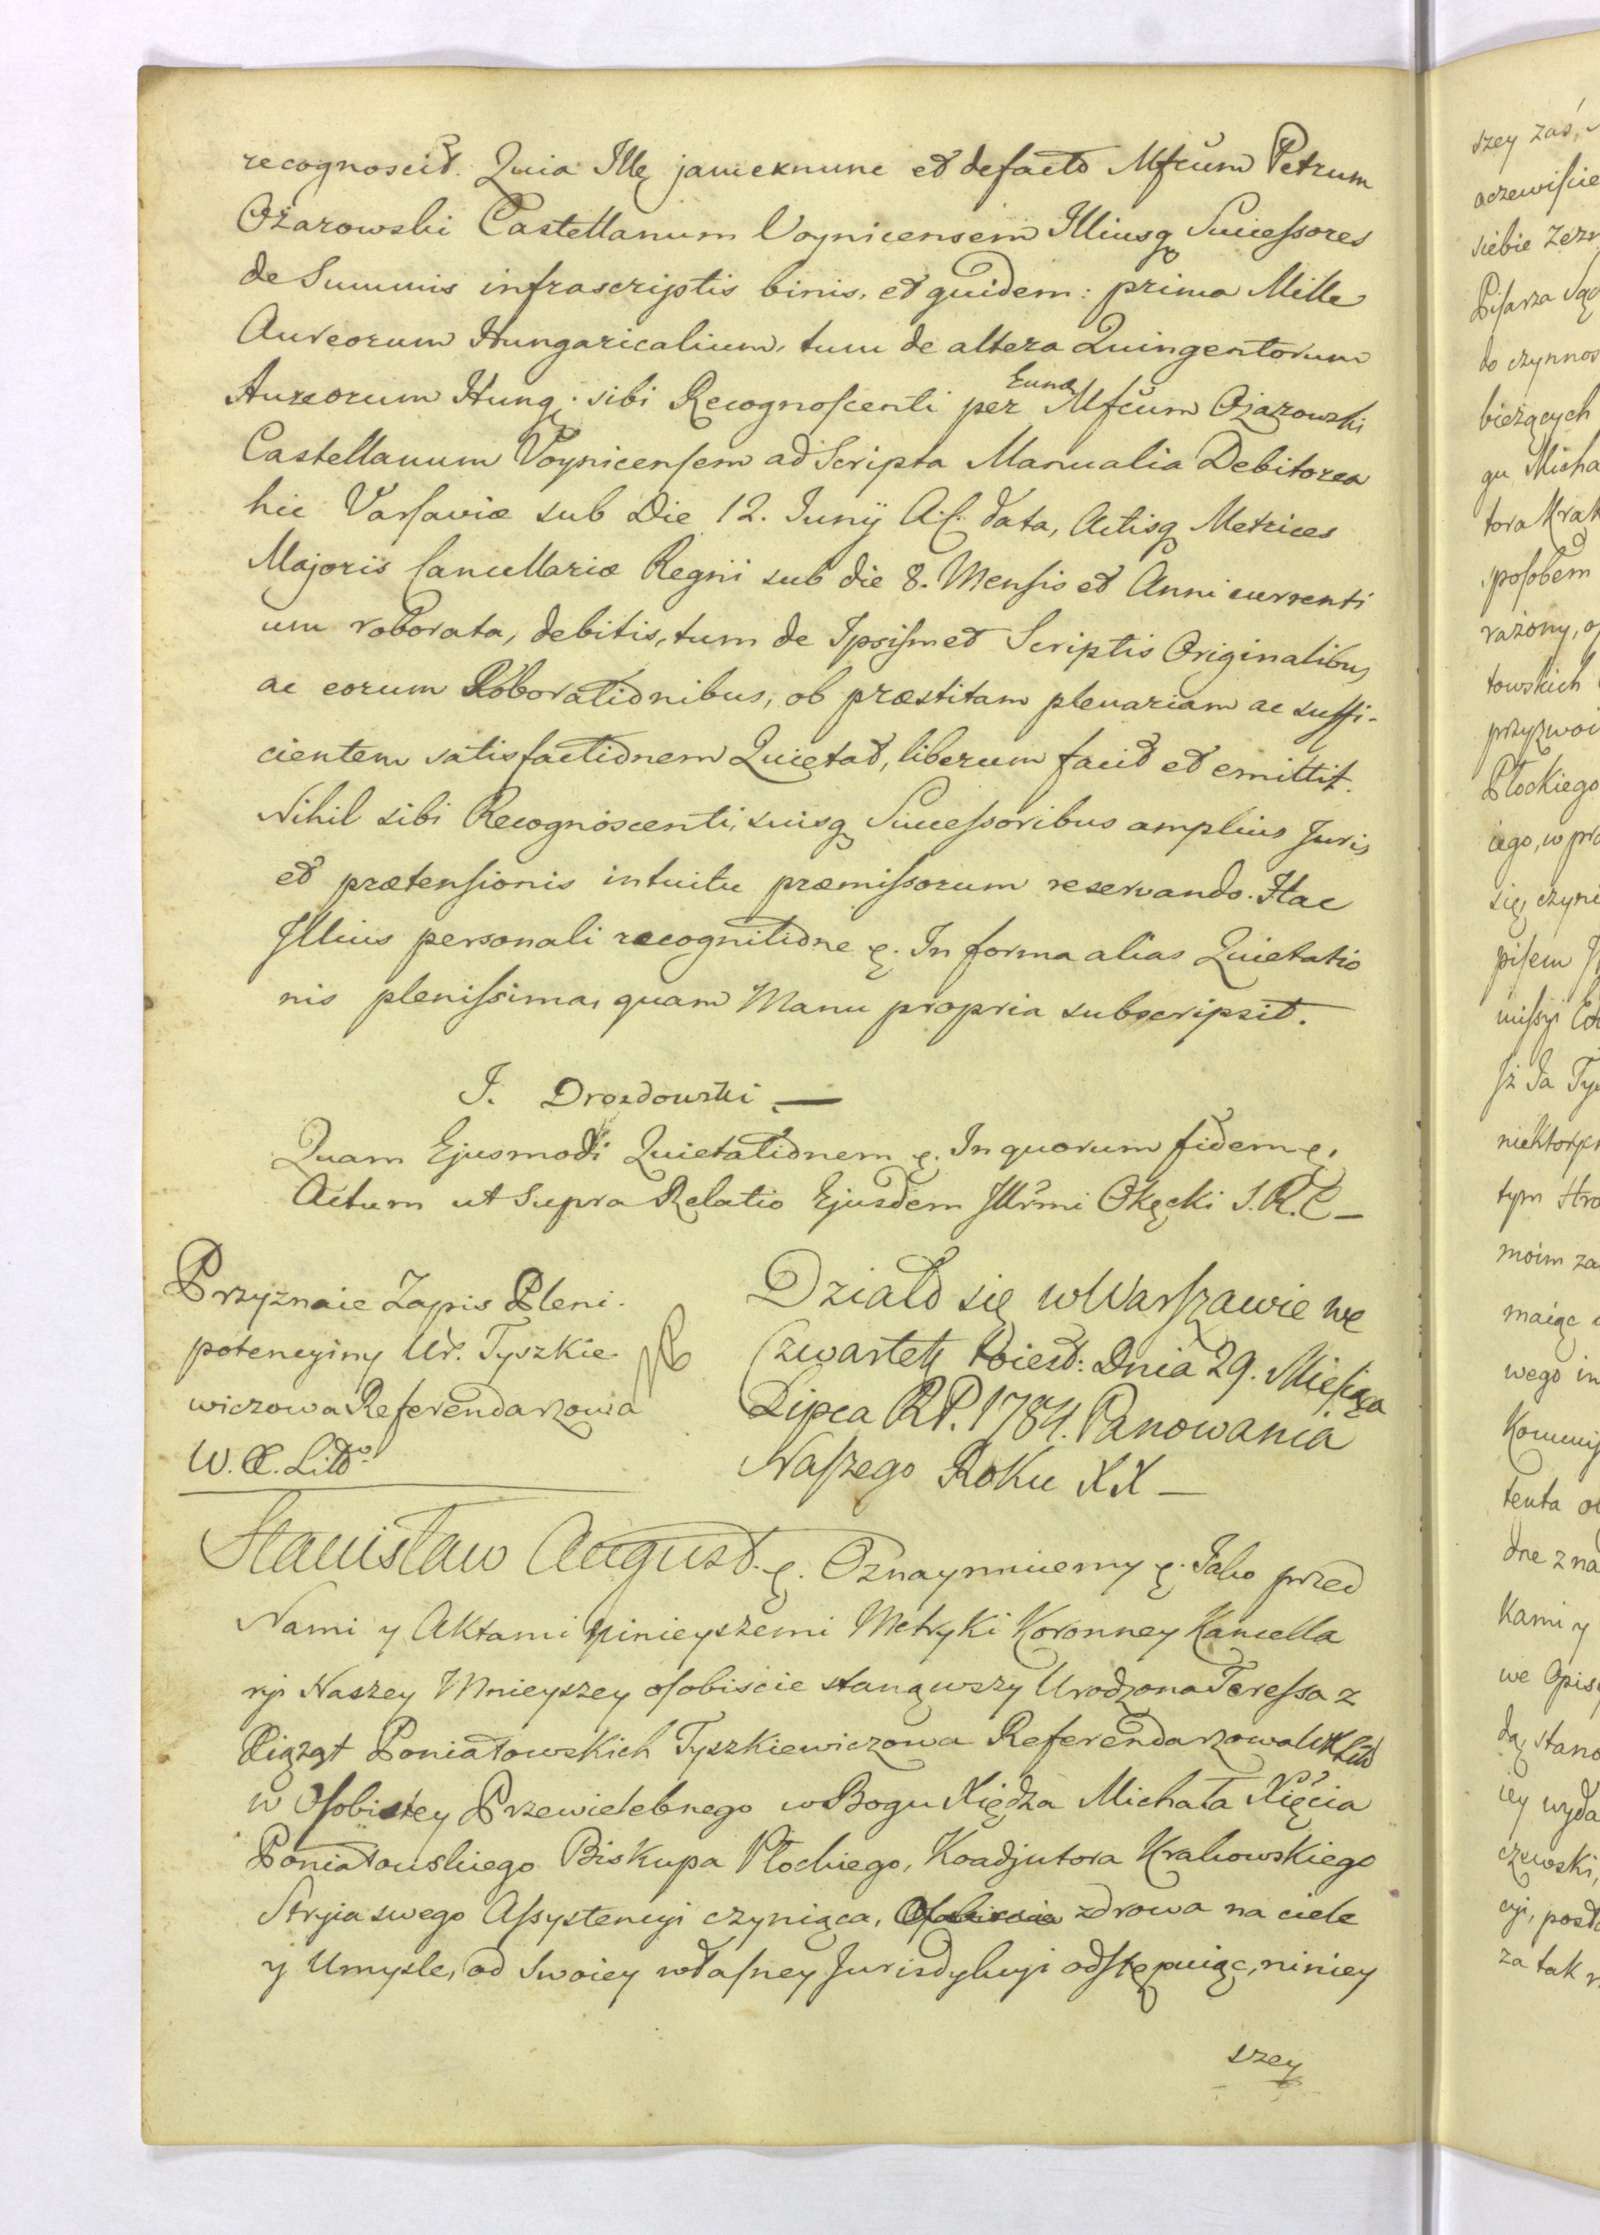 recognoscit. Quia Ille jamexnunc et defacto Mfcum Petrum
Ożarowski Castellanum Voynicensem Illiusq Successores
de Summis infrascriptis binis, et quidem: prima Mille
Aureorum Hungaricalium, tum de altera Quingentorum
Aureorum Hung. sibi Recognoscenti per Eundem Mfcum Ożarowski
Castellanum Voynicensem ad Scripta Manualia Debitorea
hic Varsaviæ sub Die 12. Junij A. C. data, Actisq Metrices
Majoris Cancellariæ Regni sub die 8. Mensis et Anni currenti
um roborata, debitis, tum de Ipsismet Scriptis Originalibus
ac eorum Roborationibus, ob præstitam plenariam ac suffi-
cientem satisfactionem Quietat, liberum facit et emittit.
Nihil sibi Recognoscenti, suisq Successoribus amplius Juris
et prætensionis intuitu præmissorum reservando. Hac
Illius personali recognitione &. In forma alias Quietatio
nis plenissima, quam Manu propria subscripsit.
J. Drozdowski —
Quam Ejusmodi Quietationem &. In quorum fidem &.
Actum ut Supra Relatio Ejusdem Illrmi Okęcki S.R.C —
Przyznaie Zapis Pleni-
potencyiny Ur. Tyszkie-
wiczowa Referendarzowa
W. X. Litt.
Działo się w Warszawie we
Czwartek to iest: Dnia 29. Miesiąca
Lipca R.P. 1784. Panowania
Naszego Roku XX —
Stanisław August. &. Oznaymuiemy &. Jako przed
Nami y Aktami ninieyszemi Metryki Koronney Kancella
ryi Naszey Mnieyszey osobiście stanąwszy Urodzona Teressa z
Xiążąt Poniatowskich Tyszkiewiczowa Referendarzowa WX Litt
w Osobistey Przewielebnego w Bogu Xiędza Michała Xięcia
Poniatowskiego Biskupa Płockiego, Koadjutora Krakowskiego
Stryia swego Assystencyi czyniąca, zdrowa na ciele
y Umysle, od Swoiey własney Jurisdykcyi odstępuiąc, niniey
szey
szey zaś,
oczewiście
siebie Zezn
Pisarza Sąd
do czynnos
bieżących
gu Micha
tora Krak
sposobem
rażony, o
towskich
przyzwoi
Płockiego
iego, w pra
się, czyni
pisem
missyi
niektórych
tym
moim za
maiąc
wego in
Kommis
tenta
dne zna
kami y
we Opis
dą stano
iey wyda
czewski,
cyi, posta
za tak